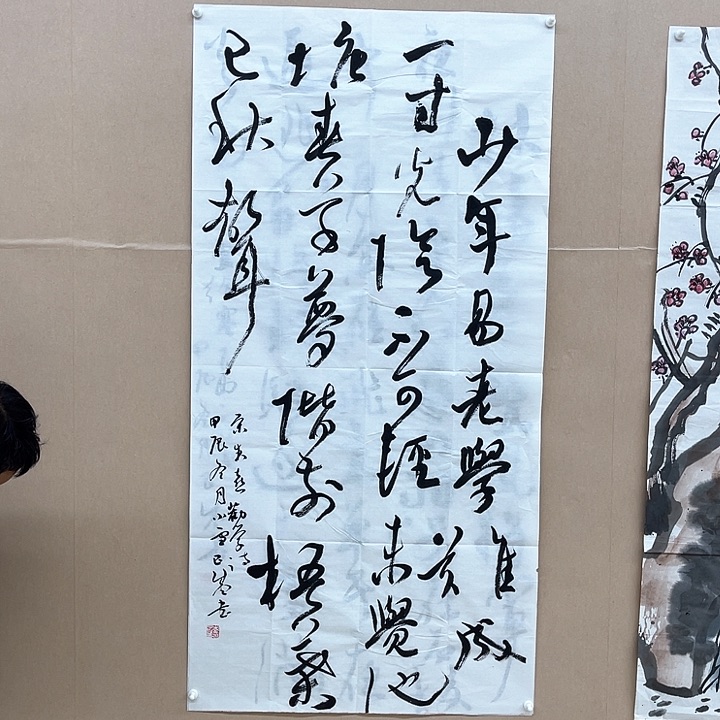 少年易老學難成
一寸光陰不可輕未覺池
塘春草夢階前梧葉
已秋聲
宋朱熹勸學詩
甲辰冬月小雪